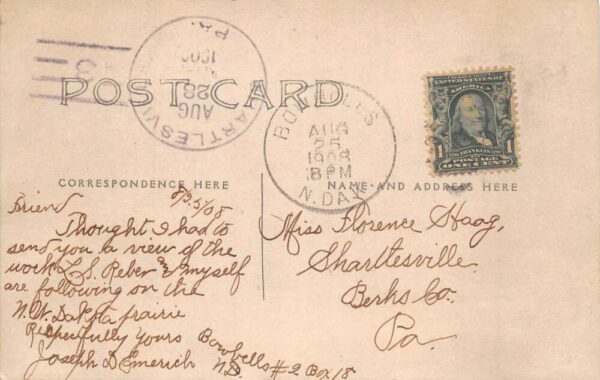 3
ARTLESVI
PA.
AUG
28
190
POST CARD
BOWBELLS
AUG
25
1908
8 PM
N. DAK.
POSTAGE
UNITED STATES OF
AMERICA
1
1
FRANKLIN
POSTAGE ONE CENT
CORRESPONDENCE HERE
NAME AND ADDRESS HERE
8/25/08
Friend
Thought I had to
send you a view of the
work L. S. Reber and myself
are following on the
N.W. Dakota prairie
Respectfully yours
Joseph D Emerich
Bowbells
N.D. #2 Box 18
Miss Florence Haag,
Shartlesville
Berks Co.
Pa.